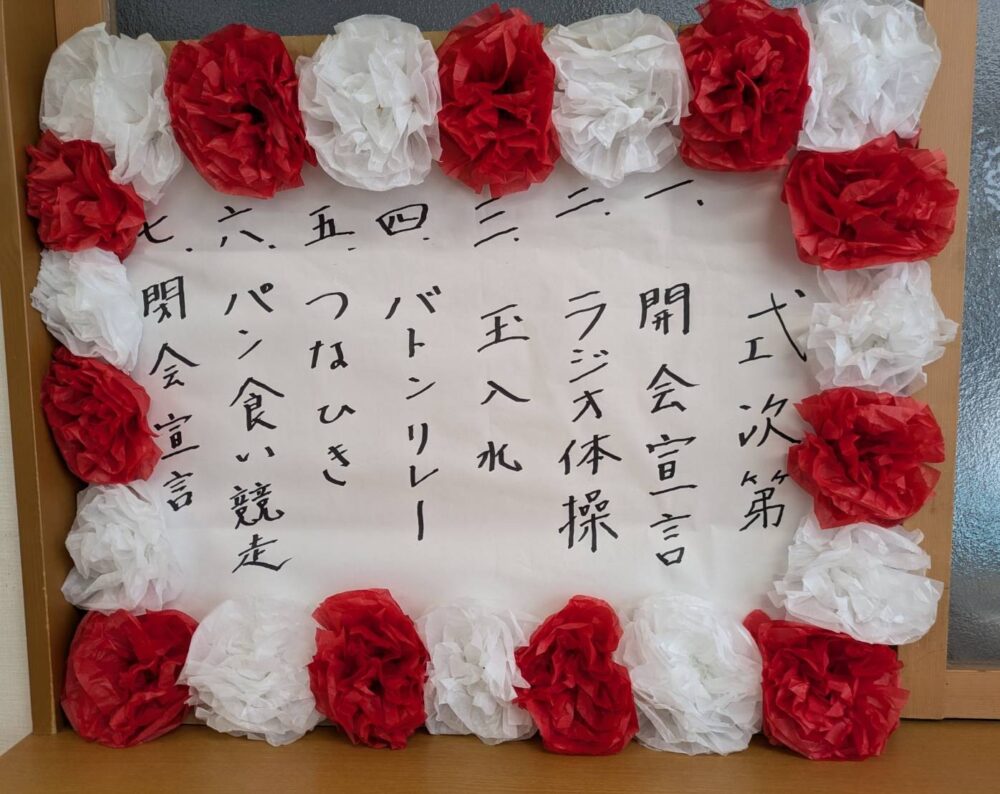 式次第
一、開会宣言
二、ラジオ体操
三、玉入れ
四、バトンリレー
五、つなひき
六、パン食い競走
七、閉会宣言